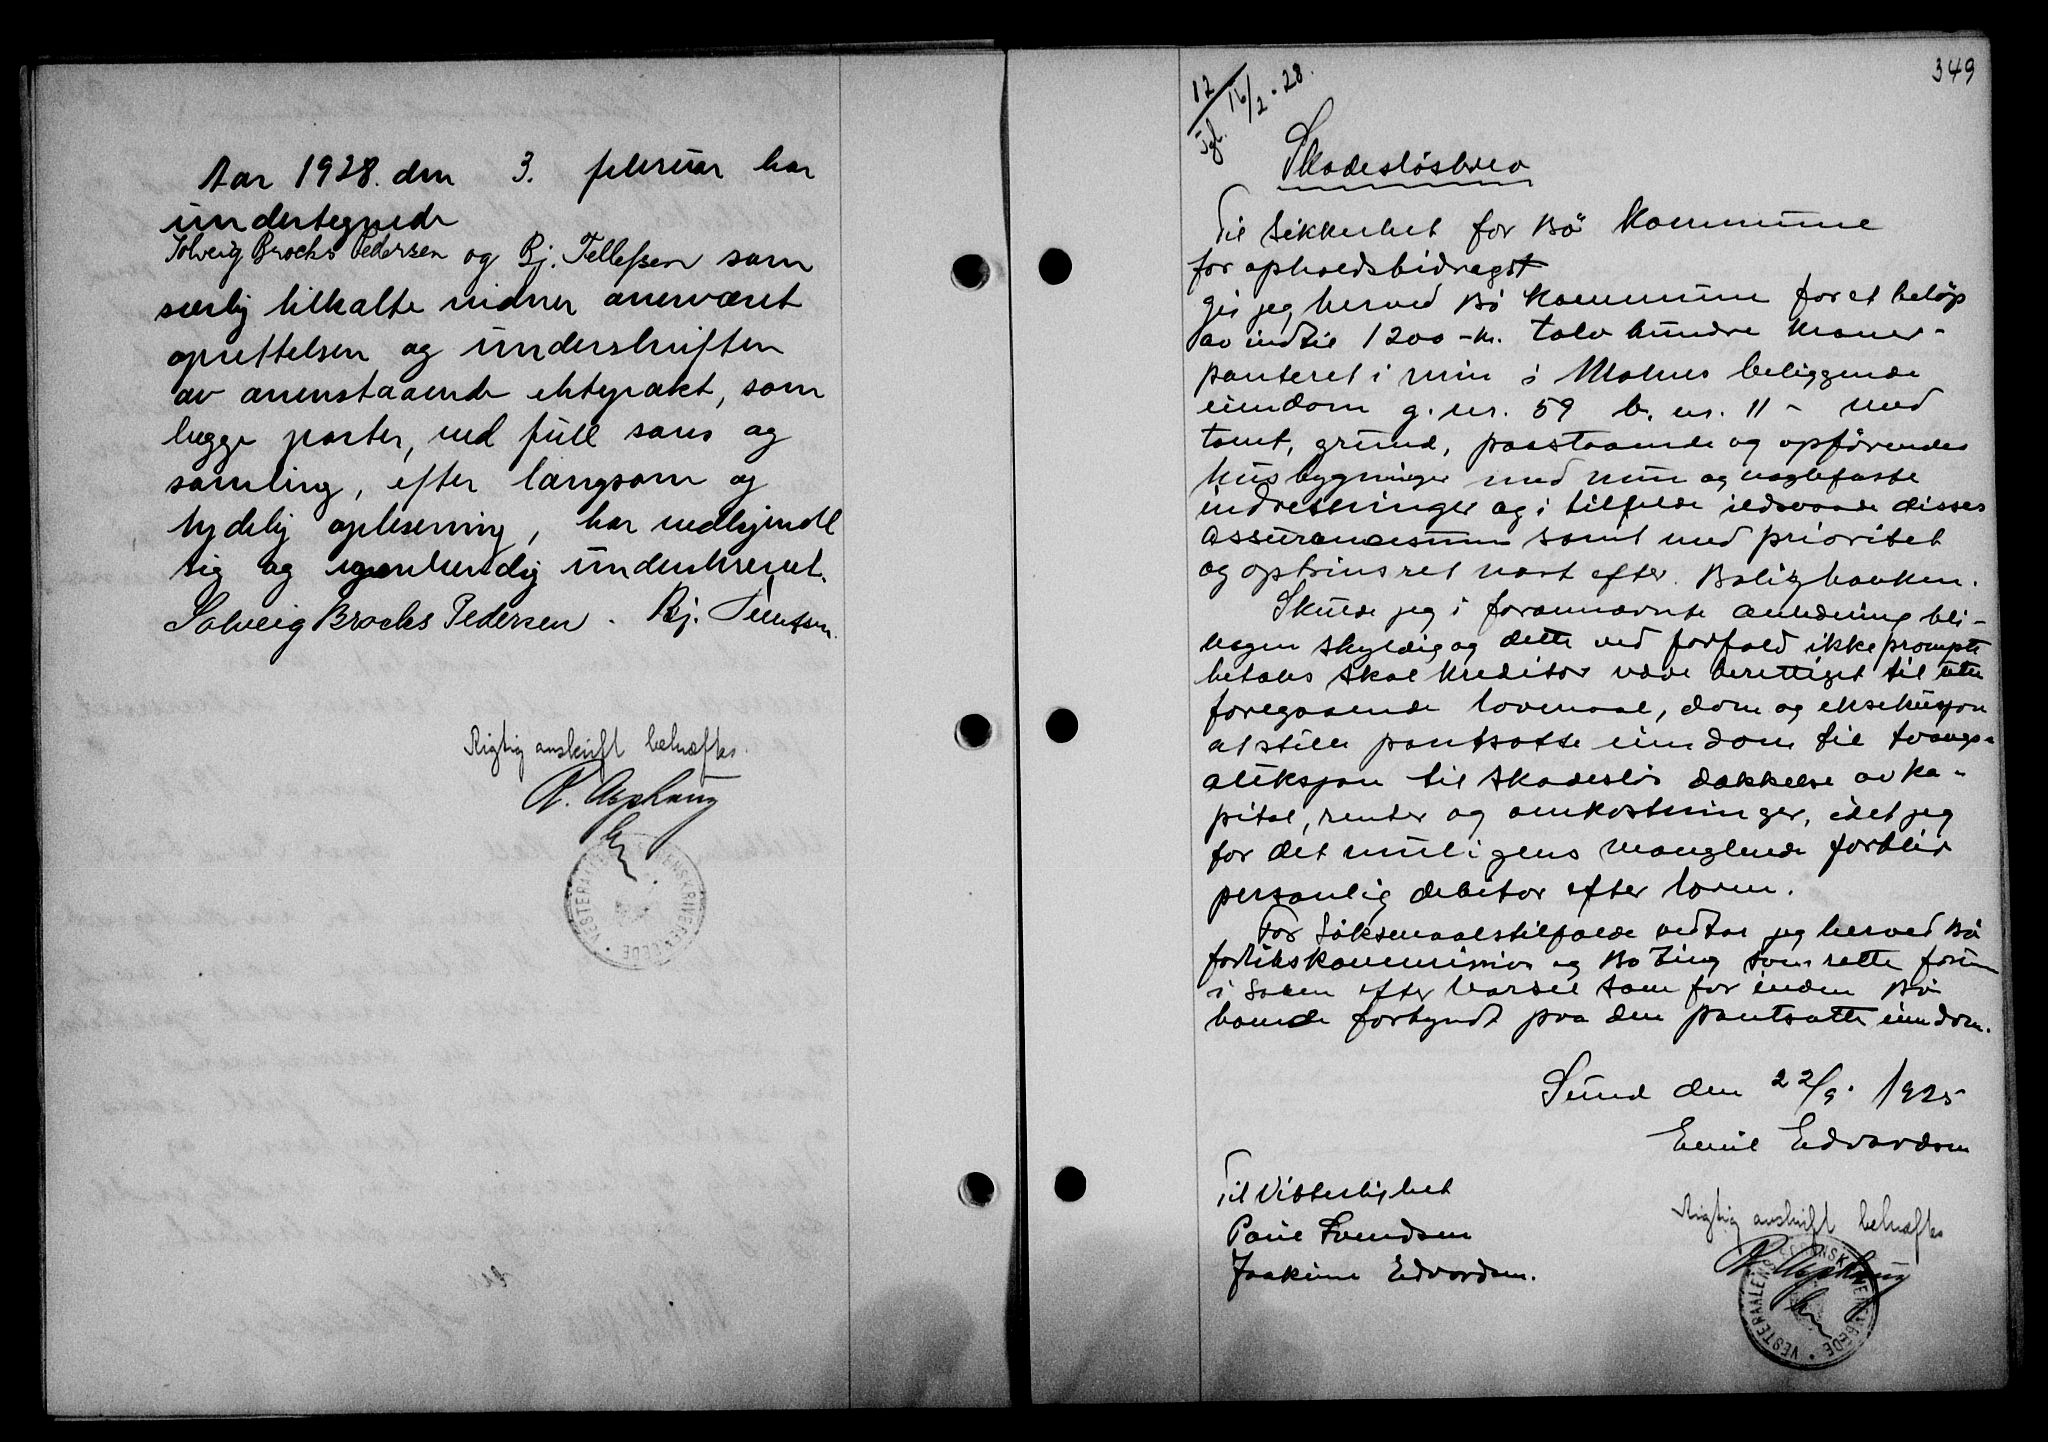 Aar 1928. den 3. februar har
undertegnede
Solveig Brochs Pedersen og Bj. Tellefsen som
særlig tilkalte vidner overværet
oprettelsen og underskriften
av ovenstaaende ektepakt, som
begge parter, ved full sans og
samling, efter langsom og
tydelig oplæsning, har vedkjendt
sig og egenhendig underskrevet.
Solveig Brochs Pedersen. Bj. Tellefsen.
Rigtig avskrift bekræftes.
VESTERAALENS SORENSKRIVEREMBEDE
349
12
Tgl. 16/2.28.
Skadesløsbrev
Til sikkerhet for Bö kommune
for opholdsbidraget
gir jeg herved Bö kommune for et beløp
av indtil 1200 - kr. tolv hundre kroner -
panteret i min i Malnes beliggende
eiendom g. nr. 59 b. nr. 11 - med
tomt, grund, paastaaende og opførendes
husbygninger med mur og naglefaste
indretninger og i tilfelde ildsvaade disses
assurancesum samt med prioritet
og optrinsret næst efter Boligbanken.
Skulde jeg i forannævnte anledning bli
nogen skyldig og dette ved forfald ikke prompte
betales skal kreditor være berettiget til uten
foregaaende lovmaal, dom og eksekusjon
at stille pantsatte eiendom til tvangs-
auksjon til skadesløs dækkelse av ka-
pital, renter og omkostninger, idet jeg
for det muligens manglende forblir
personlig debitor efter loven.
For søksmaalstilfælde vedtar jeg herved Bö
forlikskommission og Bö Ting som rette forum
i saken efter varsel som for inden Bö
boende forkyndt paa den pantsatte eiendom.
Sund den 22/9. 1925
Emil Edvardsen
Til Vitterlighet
Paul Svendsen
Joakime Edvardsen.
Rigtig avskrift bekræftes
VESTERAALENS SORENSKRIVEREMBEDE